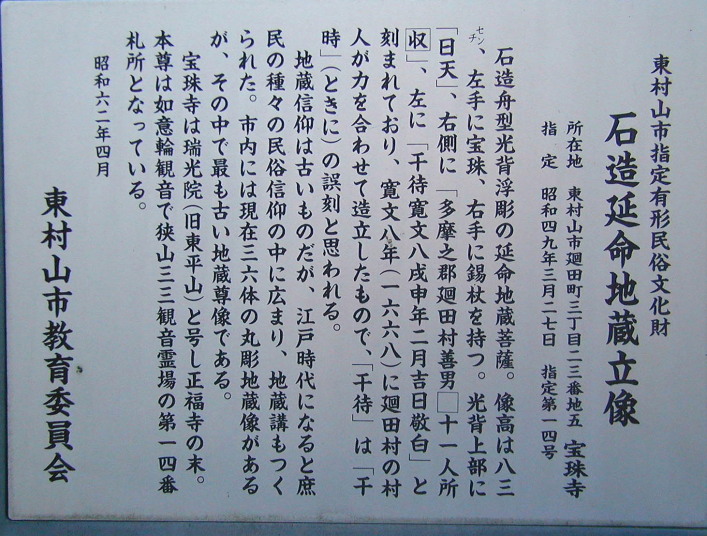 東村山市指定有形民俗文化財
石造延命地蔵立像
所在地 東村山市廻田町三丁目二三番地五 宝珠寺
指定 昭和四九年三月二七日 指定第一四号
石造舟型光背浮彫の延命地蔵菩薩。像高は八三
センチ、左手に宝珠、右手に錫杖を持つ。光背上部に
「日天」、右側に「多摩之郡廻田村善男□十一人所
収」、左に「干待寛文八戌申年二月吉日敬白」と
刻まれており、寛文八年(一六六八)に廻田村の村
人が力を合わせて造立したもので、「干待」は「干
時」(ときに)の誤刻と思われる。
地蔵信仰は古いものだが、江戸時代になると庶
民の種々の民俗信仰の中に広まり、地蔵講もつく
られた。市内には現在三六体の丸彫地蔵像がある
が、その中で最も古い地蔵尊像である。
宝珠寺は瑞光院(旧東平山)と号し正福寺の末。
本尊は如意輪観音で狭山三三観音霊場の第一四番
札所となっている。
昭和六二年四月
東村山市教育委員会